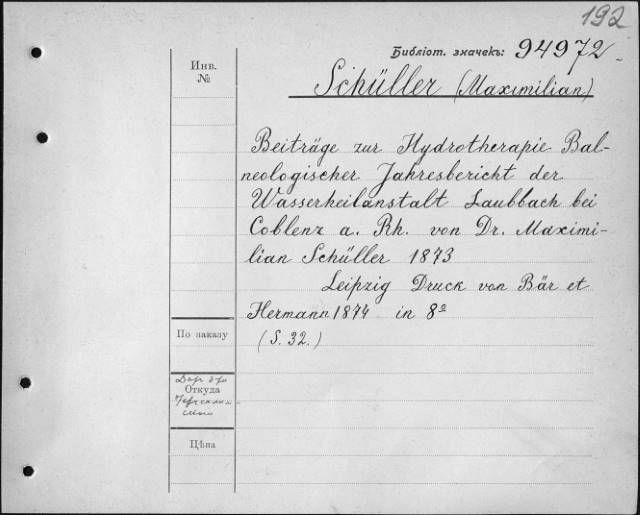 192
Библіот. значекъ: 94972
Инв.
№
Schüller (Maximilian)
Beiträge zur Hydrotherapie Bal-
neologischer Jahresbericht der
Wasserheilanstalt Laubbach bei
Coblenz a. Rh. von Dr. Maximi-
lian Schüller 1873
Leipzig Druck von Bär et
Hermann 1874 in 8º
(S. 32.)
По заказу
Откуда
Цѣна